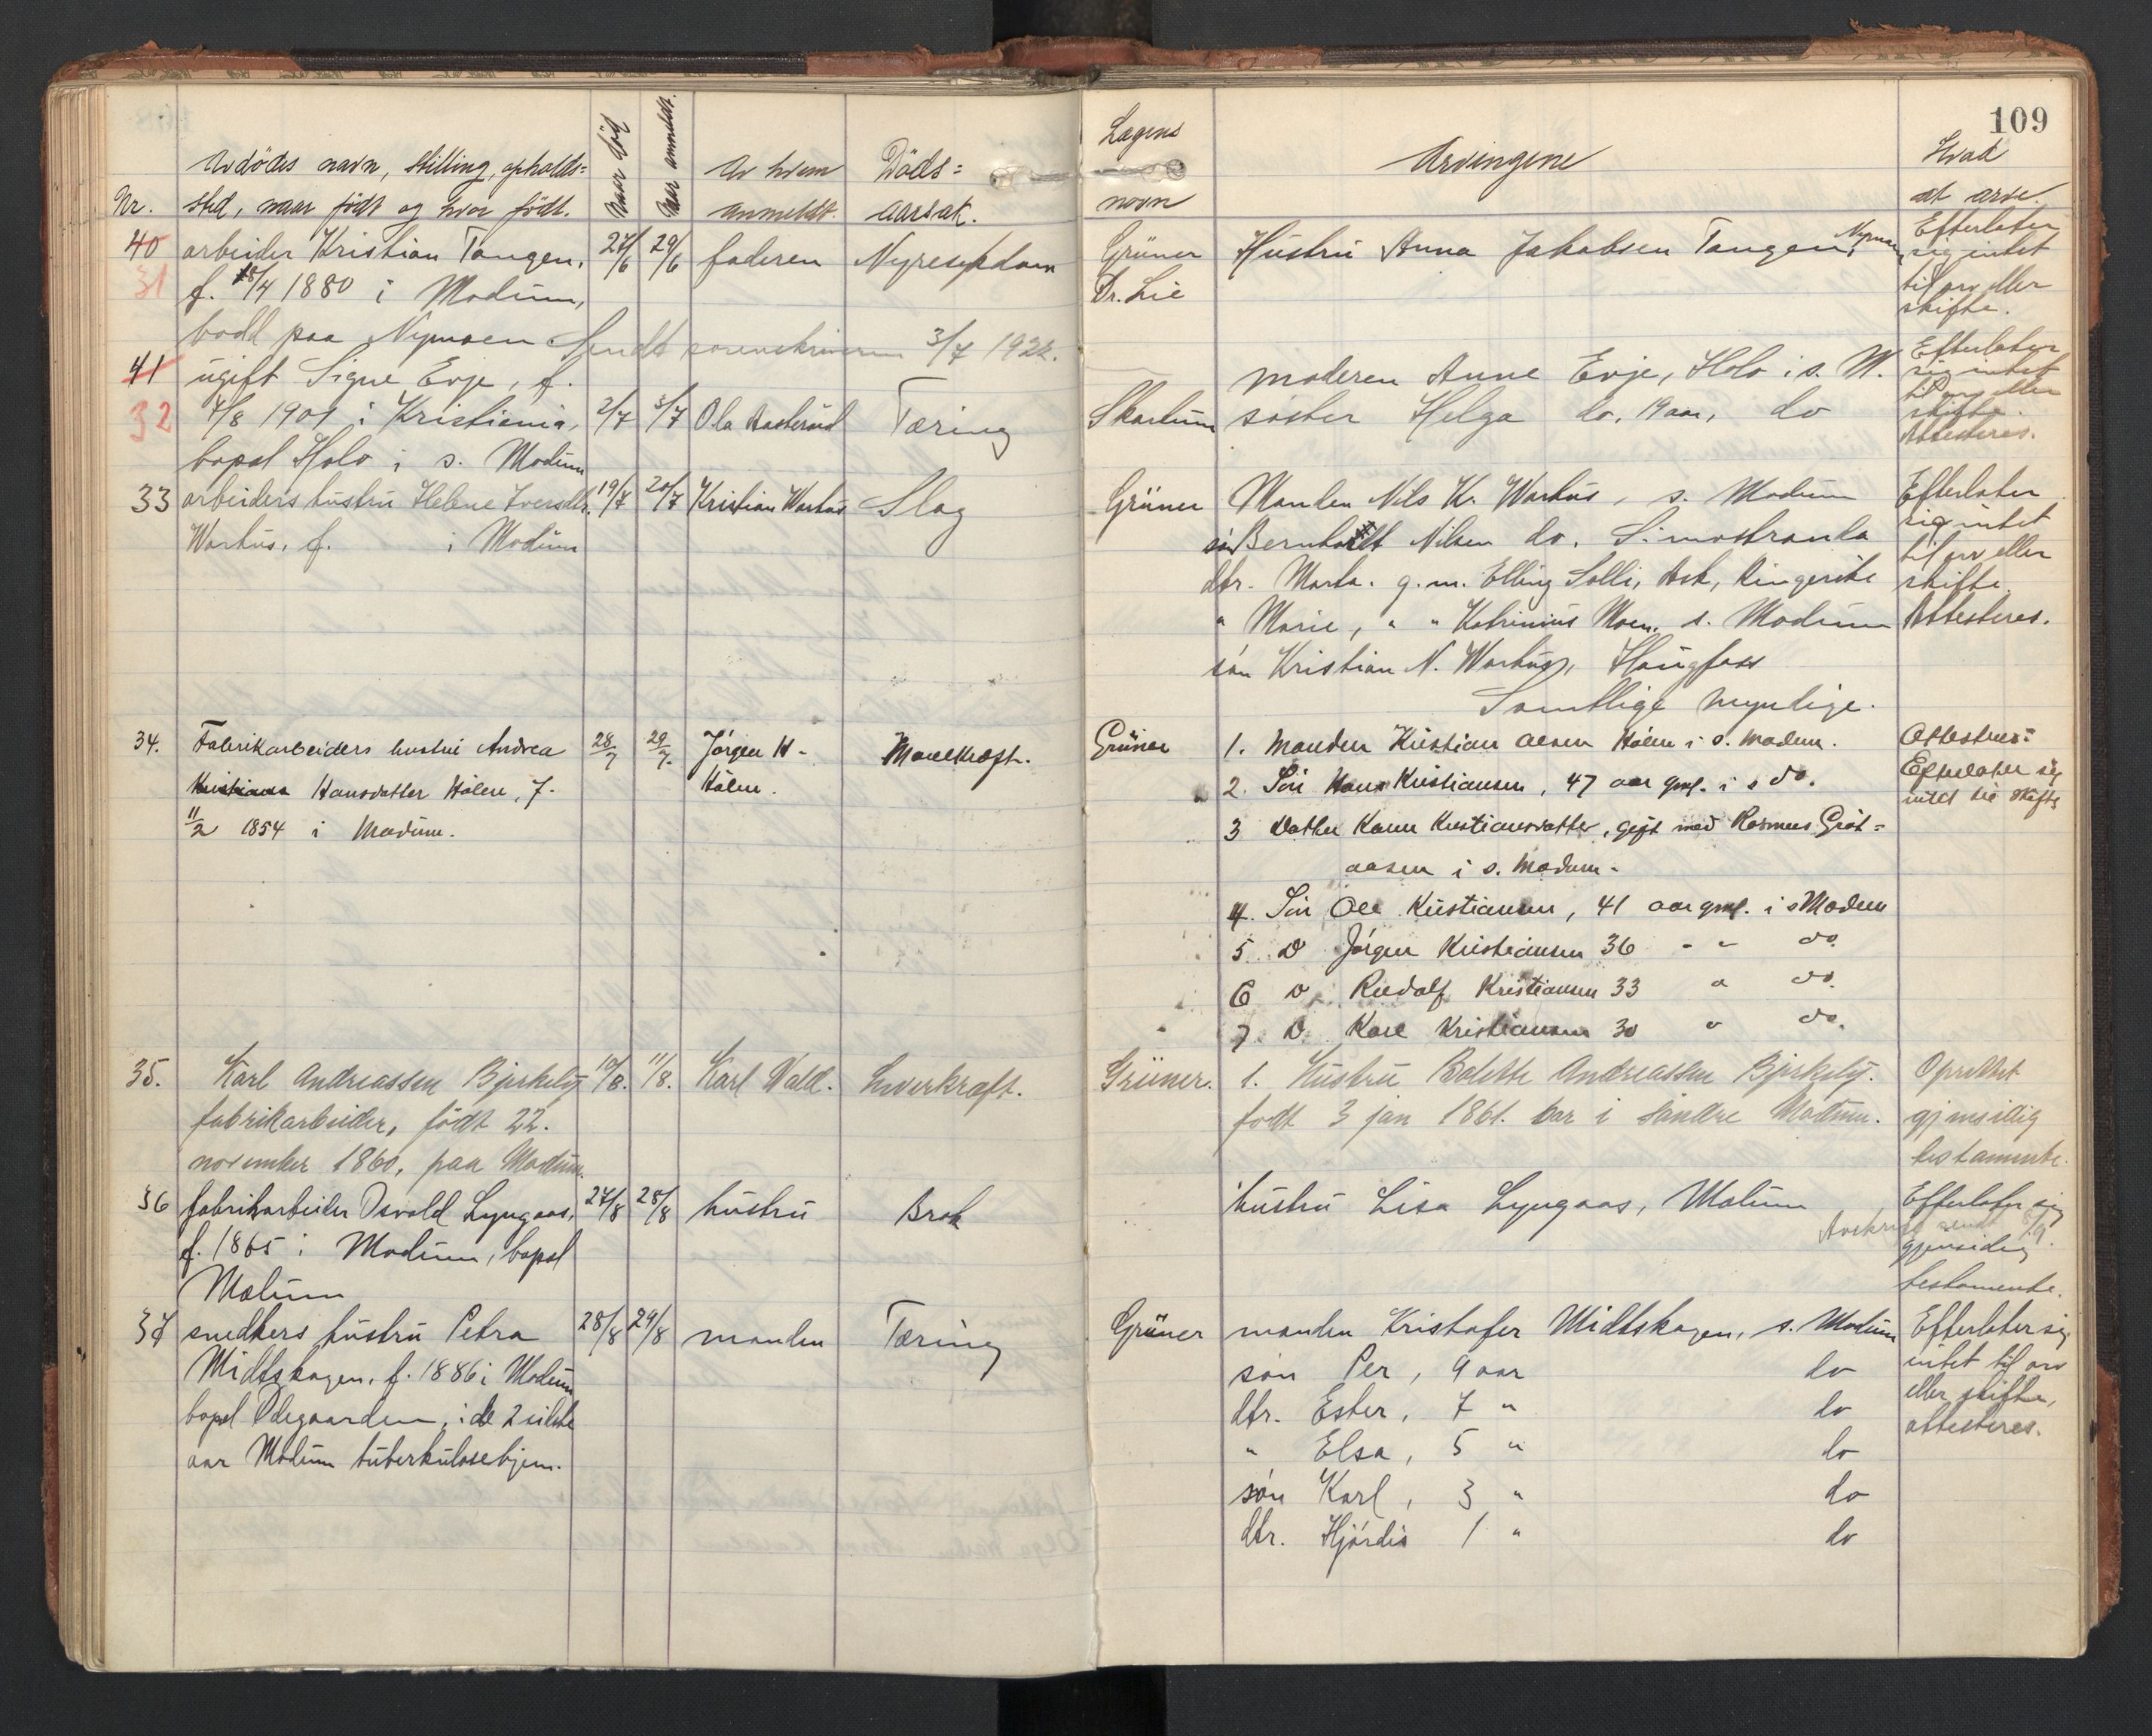 109
Avdödes navn, stilling, opholds=
Nr. sted, naar födt og hvor födt.
Naar död
Naar anmeldt.
Av hvem
anmeldt.
Döds=
aarsak.
Lægens
navn
Arvingene
Hvad
at arve.
40 arbeider Kristian Tangen, 27/6 29/6 faderen Nyresykdom
31 f. 18/4 1880 i Modum,
bodd paa Nymoen Sendt sorenskriveren 3/7 1922.
Grüner Hustru Anna Jakobsen Tangen, Nymoen
Dr. Lie
Efterlater
sig intet
til arv eller
skifte.
41 ugift Signe Evje, f.
32 7/8 1901 i Kristiania, 2/7 3/7 Ola Aasterud Tæring
bopæl Holo i s. Modum
moderen Anne Evje, Holo i s. M.
Skarlum søster Helga do. 19 aar, do
Efterlater
sig intet
til arv eller
skifte.
Attesteres.
33 arbeiders hustru Helene Iversdtr. 19/7 20/7 Kristian Warhus Slag
Warhus, f. i Modum
Grüner Manden Nils K. Warhus, s. Modum
sön Bernhardt Nilsen do. Simostranda
dtr. Marta. g.m. Elling Solli, Ask, Ringerike
" Marie, " " Katrinius Moen, s. Modum
sön Kristian N. Warhus, Haugfoss
Samtlige myndige.
Efterlater
sig intet
til arv eller
skifte.
Attesteres.
34. Fabrikarbeiders hustru Andrea 28/7 29/7. Jörgen H- Mavekræft.
Hansdatter Hólen, f. Hólen.
11/2 1854 i Modum.
Grüner 1. Manden Kristian Olsen Hólen i s. Modum.
2. Sön Hans Kristiansen, 47 aar gml. i s do.
3 Datter Karen Kristiansdatter, gift med Rasmus Gröt=
aasen i s. Modum.
4. Sön Ole Kristiansen, 41 aar gml. i s Modum
5. D Jörgen Kristiansen 36 " " do.
6 D Rudolf Kristiansen 33 " do.
7. D. Karl Kristiansen 30 " do.
Attesteres:
Efterlater sig
intet til skifte
35. Karl Andreassen Bjerkely 10/8. 11/8. Karl Wald. Leverkræft.
fabrikarbeider, födt 22.
november 1860, paa Modum.
Grüner. 1. Hustru Bolette Andreassen Bjerkely.
födt 3 jan 1861. bor i Söndre Modum.
Oprettet
gjensidig
testamente.
36 fabrikarbeider Osvald Lyngaas, 27/8 28/8 hustru Brok
f. 1865 i Modum, bopæl
Mælum
hustru Lisa Lyngaas, Mælum
Efterlater sig
Avskrift sendt 5/9.
gjensidig
testamente.
37 snedkers hustru Petra 28/8 29/8 manden Tæring
Midtskogen, f. 1886 i Modum
bopæl Ödegaarden, i de 2 sidste
aar Modum tuberkulosehjem.
Grüner manden Kristofer Midtskogen, s. Modum
sön Per, 9 aar do
dtr. Ester, 7 " do
" Elsa, 5 " do
sön Karl, 3 " do
dtr. Hjördis 1 " do
Efterlater sig
intet til arv
eller skifte,
attesteres.